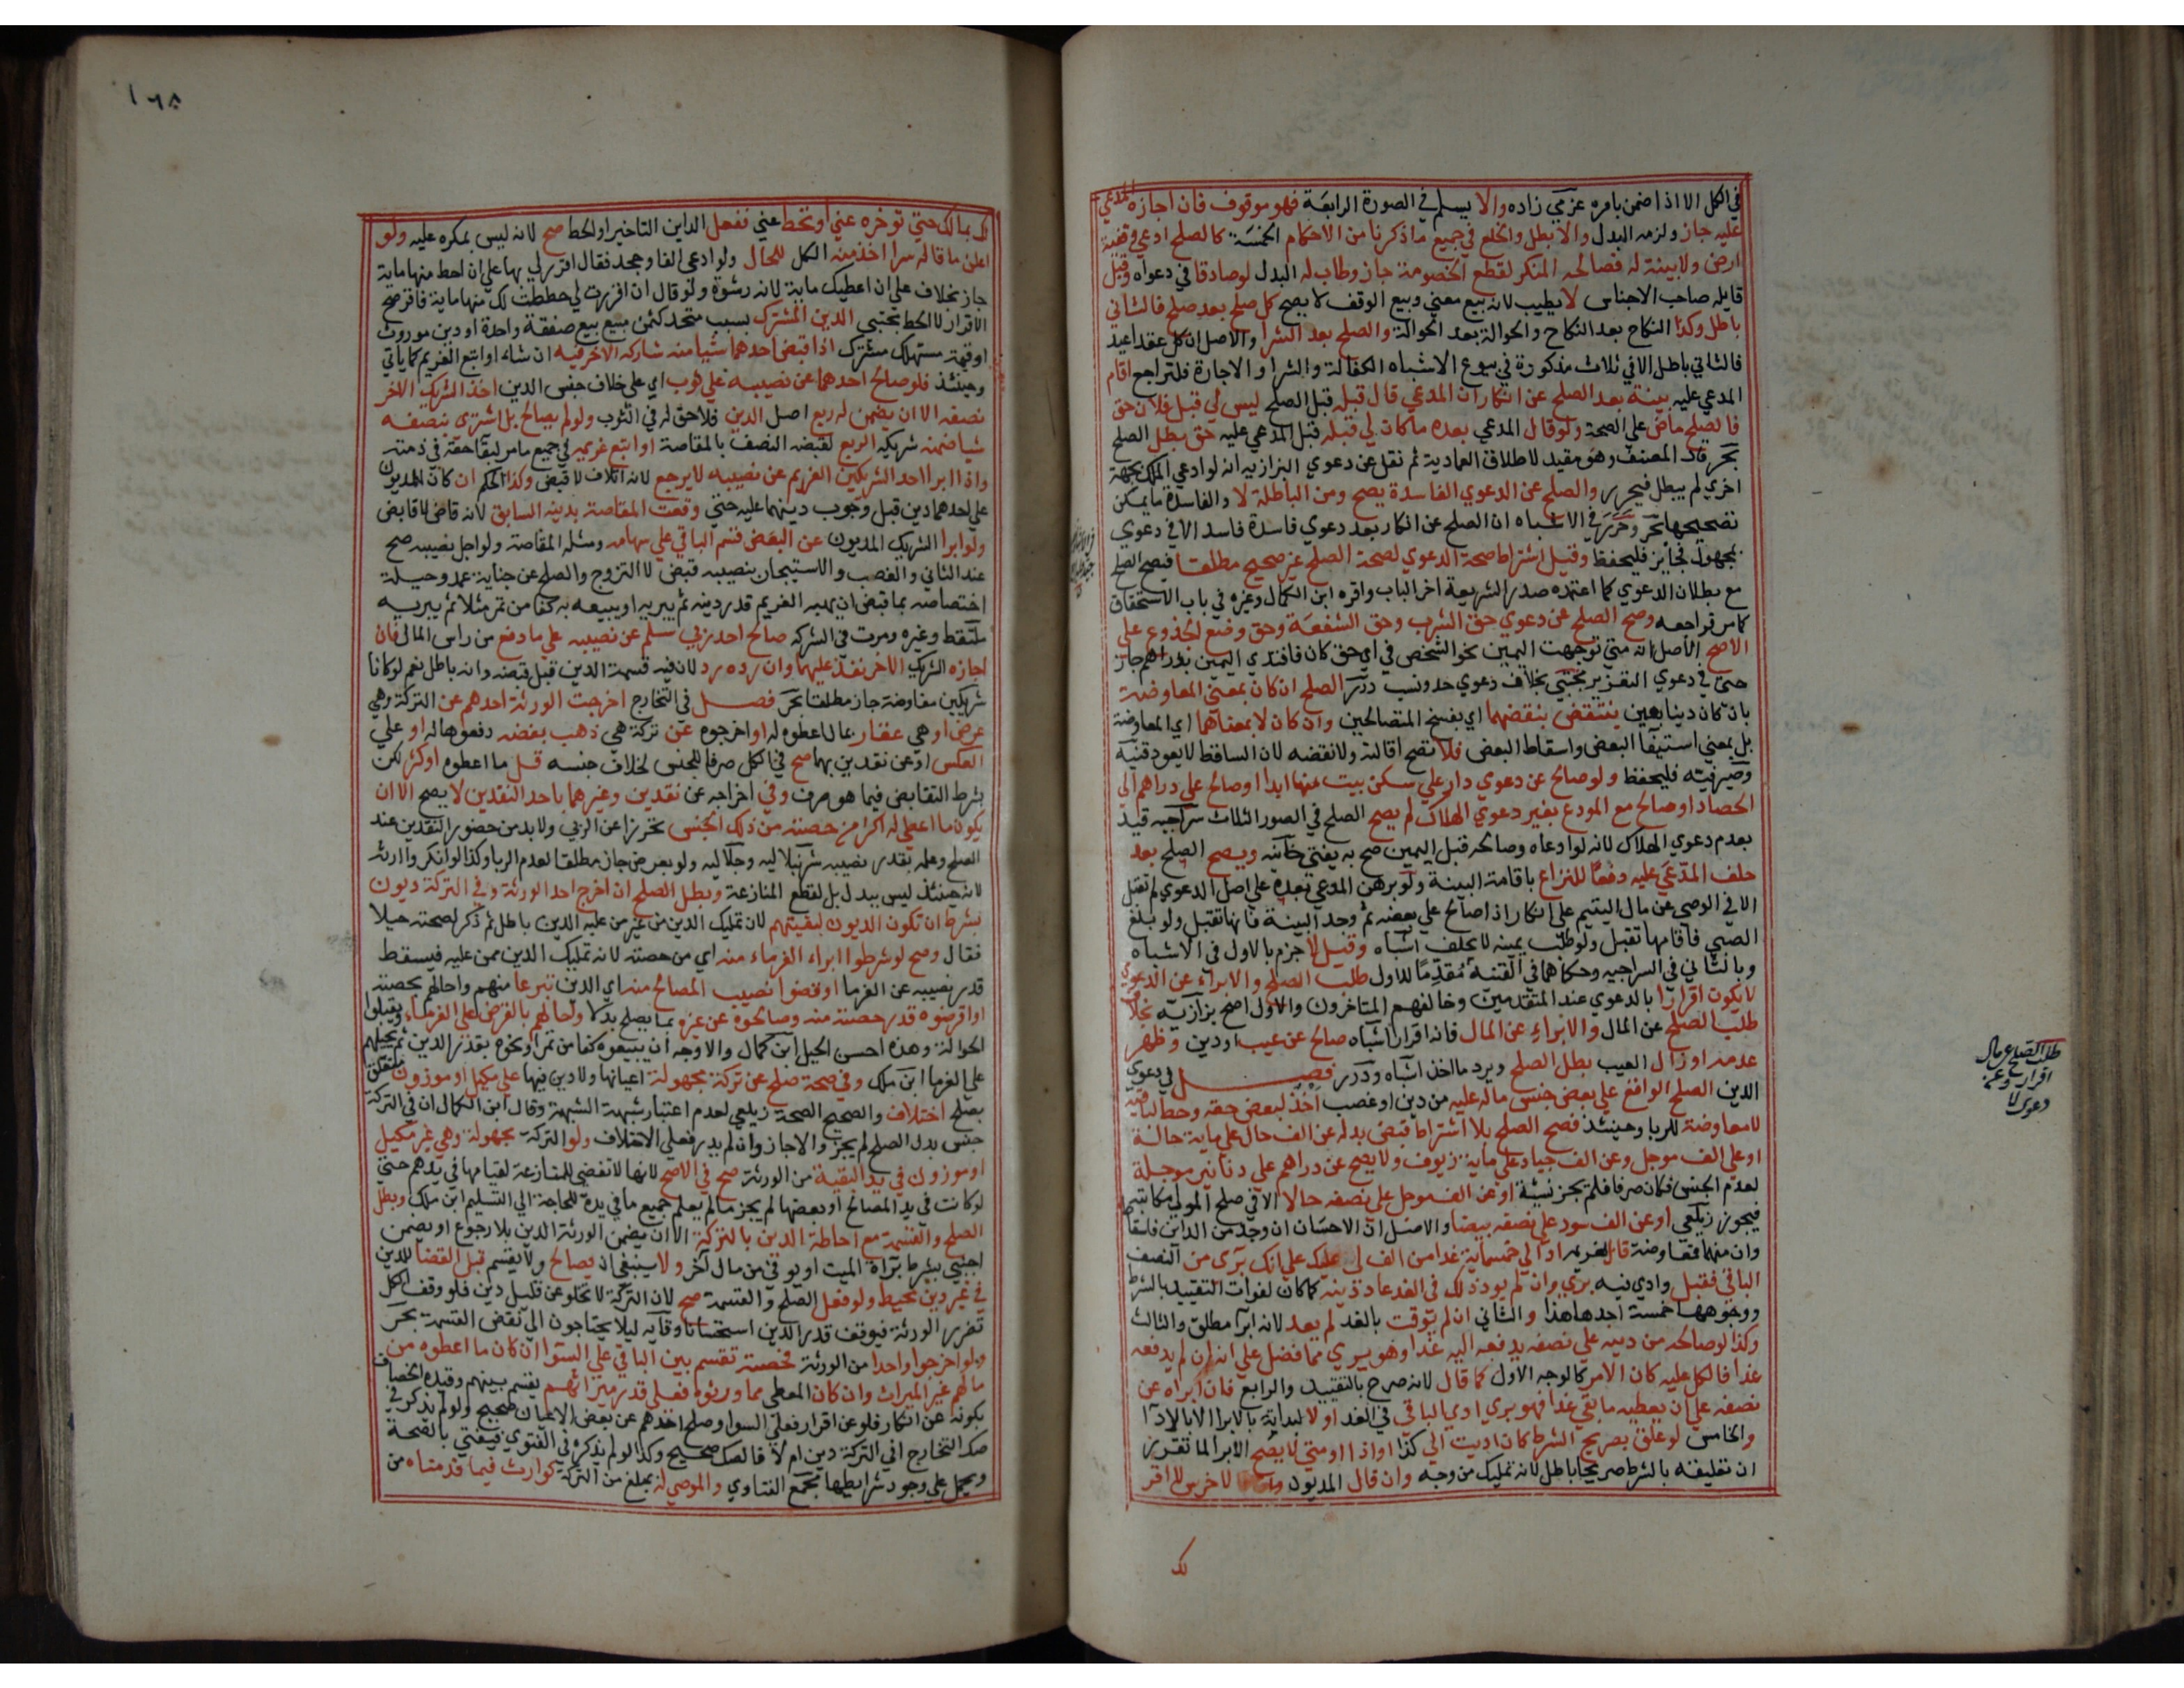 في الكل الا اذا ضمن بامره عزمي زاده والا يسلم في الصورة الرابعة فهو موقوف فان اجازه المدعي
عليه جاز ولزمه البدل والا بطل والخلع في جميع ما ذكرنا من الاحكام الخمسة كالصلح ادعي وقفية
ارض ولا بينة له فصالحه المنكر لقطع الخصومة جاز وطاب له البدل لو صادقا في دعواه وقيل
قايله صاحب الاجناس لا يطيب لانه بيع معني وبيع الوقف لا يصح كل صلح بعد صلح فالثاني
باطل وكذا النكاح بعد النكاح والحوالة بعد الحوالة والصلح بعد الشرا والاصل ان كل عقد اعيد
فالثاني باطل الا في ثلاث مذكورة في بيوع الاشباه الكفالة والشرا والاجارة فلتراجع اقام
المدعي عليه بينة بعد الصلح عن انكار ان المدعي قال قبله قبل الصلح ليس لي قبل فلان حق
فالصلح ماض علي الصحة ولو قال المدعي بعده ما كان لي قبله قبل المدعي عليه حق بطل الصلح
بحر قال المصنف وهو مقيد لاطلاق العمادية ثم نقل عن دعوي البزازيه انه لو ادعي الملك بجهة
اخري لم يبطل فيحرر والصلح عن الدعوي الفاسدة يصح ومن الباطلة لا والفاسدة ما يمكن
تصحيحها بحر وحرر في الاشباه ان الصلح عن انكار بعد دعوي فاسدة فاسد الا في دعوي
بمجهول فجايز فليحفظ وقيل اشتراط صحة الدعوي لصحة الصلح غير صحيح مطلقا فيصح الصلح
مع بطلان الدعوي كما اعتمده صدر الشريعة اخر الباب واقره ابن الكمال وغيره في باب الاستحقاق
كما مر فراجعه وصح الصلح عن دعوي حق الشرب وحق الشفعة وحق وضع الجذوع علي
الاصح الاصل انه متي توجهت اليمين نحو الشخص في اي حق كان فافتدي اليمين بدراهم جاز
حتي في دعوي التعزير مجتبي بخلاف دعوي حد ونسب درر الصلح ان كان بمعني المعاوضة
بان كان دينا بعين ينتقض بنقضهما اي بفسخ المتصالحين وان كان لا بمعناها اي المعاوضة
بل بمعني استيفا البعض واسقاط البعض فلا تصح اقالته ولا نقضه لان الساقط لا يعود قنية
وصيرفية فليحفظ ولو صالح عن دعوي دار علي سكن بيت منها ابدا او صالح علي دراهم الي
الحصاد او صالح مع المودع بغير دعوي الهلاك لم يصح الصلح في الصور الثلاث سراجيه قيد
بعدم دعوي الهلاك لانه لو ادعاه وصالحه قبل اليمين صح به يفتي خانيه ويصح الصلح بعد
حلف المدعي عليه دفعا للنزاع باقامة البينة ولو برهن المدعي بعده علي اصل الدعوي لم تقبل
الا في الوصي عن مال اليتيم علي انكار اذا صالح علي بعضه ثم وجد البينة فانها تقبل ولو بلغ
الصبي فاقامها تقبل ولو طلب يمينه لا يحلف اشباه وقيل لا جزم بالاول في الاشباه
وبالثاني في السراجيه وحكاهما في القنية مقدما للاول طلب الصلح والابراء عن الدعوي
لا يكون اقرارا بالدعوي عند المتقدمين وخالفهم المتاخرون والاول اصح بزازيه بخلاف
طلب الصلح عن المال والابراء عن المال فانه اقرار اشباه صالح عن عيب او دين وظهر
عدمه او زال العيب بطل الصلح ويرد ما اخذ اشباه ودرر فصل في دعوي
الدين الصلح الواقع علي بعض جنس ماله عليه من دين او غصب اخذ لبعض حقه وحط لباقيه
لا معاوضة للربا وحينئذ فصح الصلح بلا اشتراط قبض بدله عن الف حال علي ماية حالة
او علي الف موجل وعن الف جياد علي ماية زيوف ولا يصح عن دراهم علي دنانير موجلة
لعدم الجنس فكان صرفا فلم يجز نسيئة او عن الف موجل علي نصفه حالا الا في صلح المولي مكاتبه
فيجوز زيلعي او عن الف سود علي نصفه بيضا والاصل ان الاحسان ان وجد من الداين فاسقاط
وان منهما فمعاوضة قال لغريمه اد الي خمسماية غدا من الف لي عليك علي انك بري من النصف
الباقي فقبل وادي فيه بري وان لم يود ذلك في الغد عاد دينه كما كان لفوات التقييد بالشرط
ووجوهها خمسة احدها هذا والثاني ان لم يوقت بالغد لم يعد لانه ابرا مطلق والثالث
وكذا لو صالحه من دينه علي نصفه يدفعه اليه غدا وهو بري مما فضل علي انه ان لم يدفعه
غدا فالكل عليه كان الامر كالوجه الاول كما قال لانه صرح بالتقييد والرابع فان ابراه عن
نصفه علي ان يعطيه ما بقي غدا فهو بري ادي الباقي في الغد او لا لبداية بالابرا لا بالادآ
والخامس لو علق بصريح الشرط كان اديت الي كذا او اذا او متي لا يصح الابرا لما تقرر
ان تعليقه بالشرط صريحا باطل لانه تمليك من وجه وان قال المديون لاخر سرا لا اقر
لك
طلب الصلح عن مال
اقرار وعن
دعوي لا
١٦٨
لك بمالك حتي توخره عني او تحط عني ففعل الداين التاخير او الحط صح لانه ليس بمكره عليه ولو
اعلن ما قاله سرا اخذ منه الكل للحال ولو ادعي الفا وجحد فقال اقرر لي بها علي ان احط منها ماية
جاز بخلاف علي ان اعطيك ماية لانه رشوة ولو قال ان اقررت لي حططت لك منها ماية فاقر صح
الاقرار لا الحط مجتبي الدين المشترك بسبب متحد كثمن مبيع بيع صفقة واحدة او دين موروث
او قيمة مستهلك مشترك اذا قبض احدهما شيا منه شاركه الاخر فيه ان شاء او اتبع الغريم كما ياتي
وحينئذ فلو صالح احدهما عن نصيبه علي ثوب اي علي خلاف جنس الدين اخذ الشريك الاخر
نصفه الا ان يضمن له ربع اصل الدين فلا حق له في الثوب ولو لم يصالح بل اشتري بنصفه
شيا ضمنه شريكه الربع لقبضه النصف بالمقاصة او اتبع غريمه في جميع ما مر لبقا حقه في ذمته
واذا ابرا احد الشريكين الغريم عن نصيبه لا يرجع لانه اتلاف لا قبض وكذا الحكم ان كان للمديون
علي احدهما دين قبل وجوب دينهما عليه حتي وقعت المقاصة بدينه السابق لانه قاض لا قابض
ولو ابرا الشريك المديون عن البعض قسم الباقي علي سهامه ومثله المقاصة ولو اجل نصيبه صح
عند الثاني والغصب والاستيجار بنصيبه قبض لا التزوج والصلح عن جناية عمد وحيلة
اختصاصه بما قبض ان يهبه الغريم قدر دينه ثم يبريه او يبيعه به كفا من تمر مثلا ثم يبريه
ملتقط وغيره ومرت في الشركة صالح احد ربي سلم عن نصيبه علي ما دفع من راس المال فان
اجازه الشريك الاخر نفذ عليهما وان رده رد لان فيه قسمة الدين قبل قبضه وانه باطل نعم لو كانا
شريكين مفاوضة جاز مطلقا بحر فصل في التخارج اخرجت الورثة احدهم عن التركة وهي
عرض او هي عقار بمال اعطوه له او اخرجوه عن تركة هي ذهب بفضه دفعوها له او علي
العكس او عن نقدين بهما صح في الكل صرفا للجنس لخلاف جنسه قل ما اعطوه او كثر لكن
بشرط التقابض فيما هو صرف وفي اخراجه عن نقدين وغيرهما باحد النقدين لا يصح الا ان
يكون ما اعطي له اكثر من حصته من ذلك الجنس تحرزا عن الربي ولا بد من حضور النقدين عند
الصلح وعلمه بقدر نصيبه شرنبلاليه وجلاليه ولو بعرض جاز مطلقا لعدم الربا وكذا لو انكروا ارثه
لانه حينئذ ليس ببدل بل لقطع المنازعة وبطل الصلح ان اخرج احد الورثة وفي التركة ديون
بشرط ان تكون الديون لبقيتهم لان تمليك الدين من غير من عليه الدين باطل ثم ذكر لصحته حيلا
فقال وصح لو شرطوا ابراء الغرماء منه اي من حصته لانه تمليك الدين ممن عليه فيسقط
قدر نصيبه عن الغرما او قضوا نصيب المصالح منه اي الدين تبرعا منهم واحالهم بحصته
او اقرضوه قدر حصته منه وصالحوه عن غيره بما يصلح بدلا واحالهم بالقرض علي الغرماء ويقبلوا
الحوالة وهذه احسن الحيل ابن كمال والاوجه ان يبيعوه كفا من تمر او نحوه بقدر الدين ثم يحيلهم
علي الغرما ابن ملك وفي صحة صلح عن تركة مجهولة اعيانها ولا دين فيها علي مكيل او موزون متعلق
بصلح اختلاف والصحيح الصحة زيلعي لعدم اعتبار شبهة الشبهة وقال ابن الكمال ان في التركة
جنس بدل الصلح لم يجز والا جاز وان لم يدر فعلي الاختلاف ولو التركة مجهولة وهي غير مكيل
او موزون في يد البقية من الورثة صح في الاصح لانها لا تفضي للمنازعة لقيامها في يدهم حتي
لو كانت في يد المصالح او بعضها لم يجز ما لم يعلم جميع ما في يده للحاجة الي التسليم ابن ملك وبطل
الصلح والقسمة مع احاطة الدين بالتركة الا ان يضمن الورثة الدين بلا رجوع او يضمن
اجنبي بشرط براة الميت او يوفي من مال آخر ولا ينبغي ان يصالح ولا يقسم قبل القضا للدين
في غير دين محيط ولو فعل الصلح والقسمة صح لان التركة لا تخلو عن قليل دين فلو وقف الكل
تضرر الورثة فيوقف قدر الدين استحسانا وقايه ليلا يحتاجون الي نقض القسمة بحر
ولو اخرجوا واحدا من الورثة فحصته تقسم بين الباقي علي السوا ان كان ما اعطوه من
مالهم غير الميراث وان كان المعطي مما ورثوه فعلي قدر ميراثهم يقسم بينهم وقيده الخصاف
بكونه عن انكار فلو عن اقرار فعلي السوا وصلح احدهم عن بعض الاعيان صحيح ولو لم يذكر في
صك التخارج افي التركة دين ام لا فالصك صحيح وكذا لو لم يذكره في الفتوي فيفتي بالصحة
ويحمل علي وجود شرايطها مجمع الفتاوي والموصي له بمبلغ من التركة كوارث فيما قدمناه من